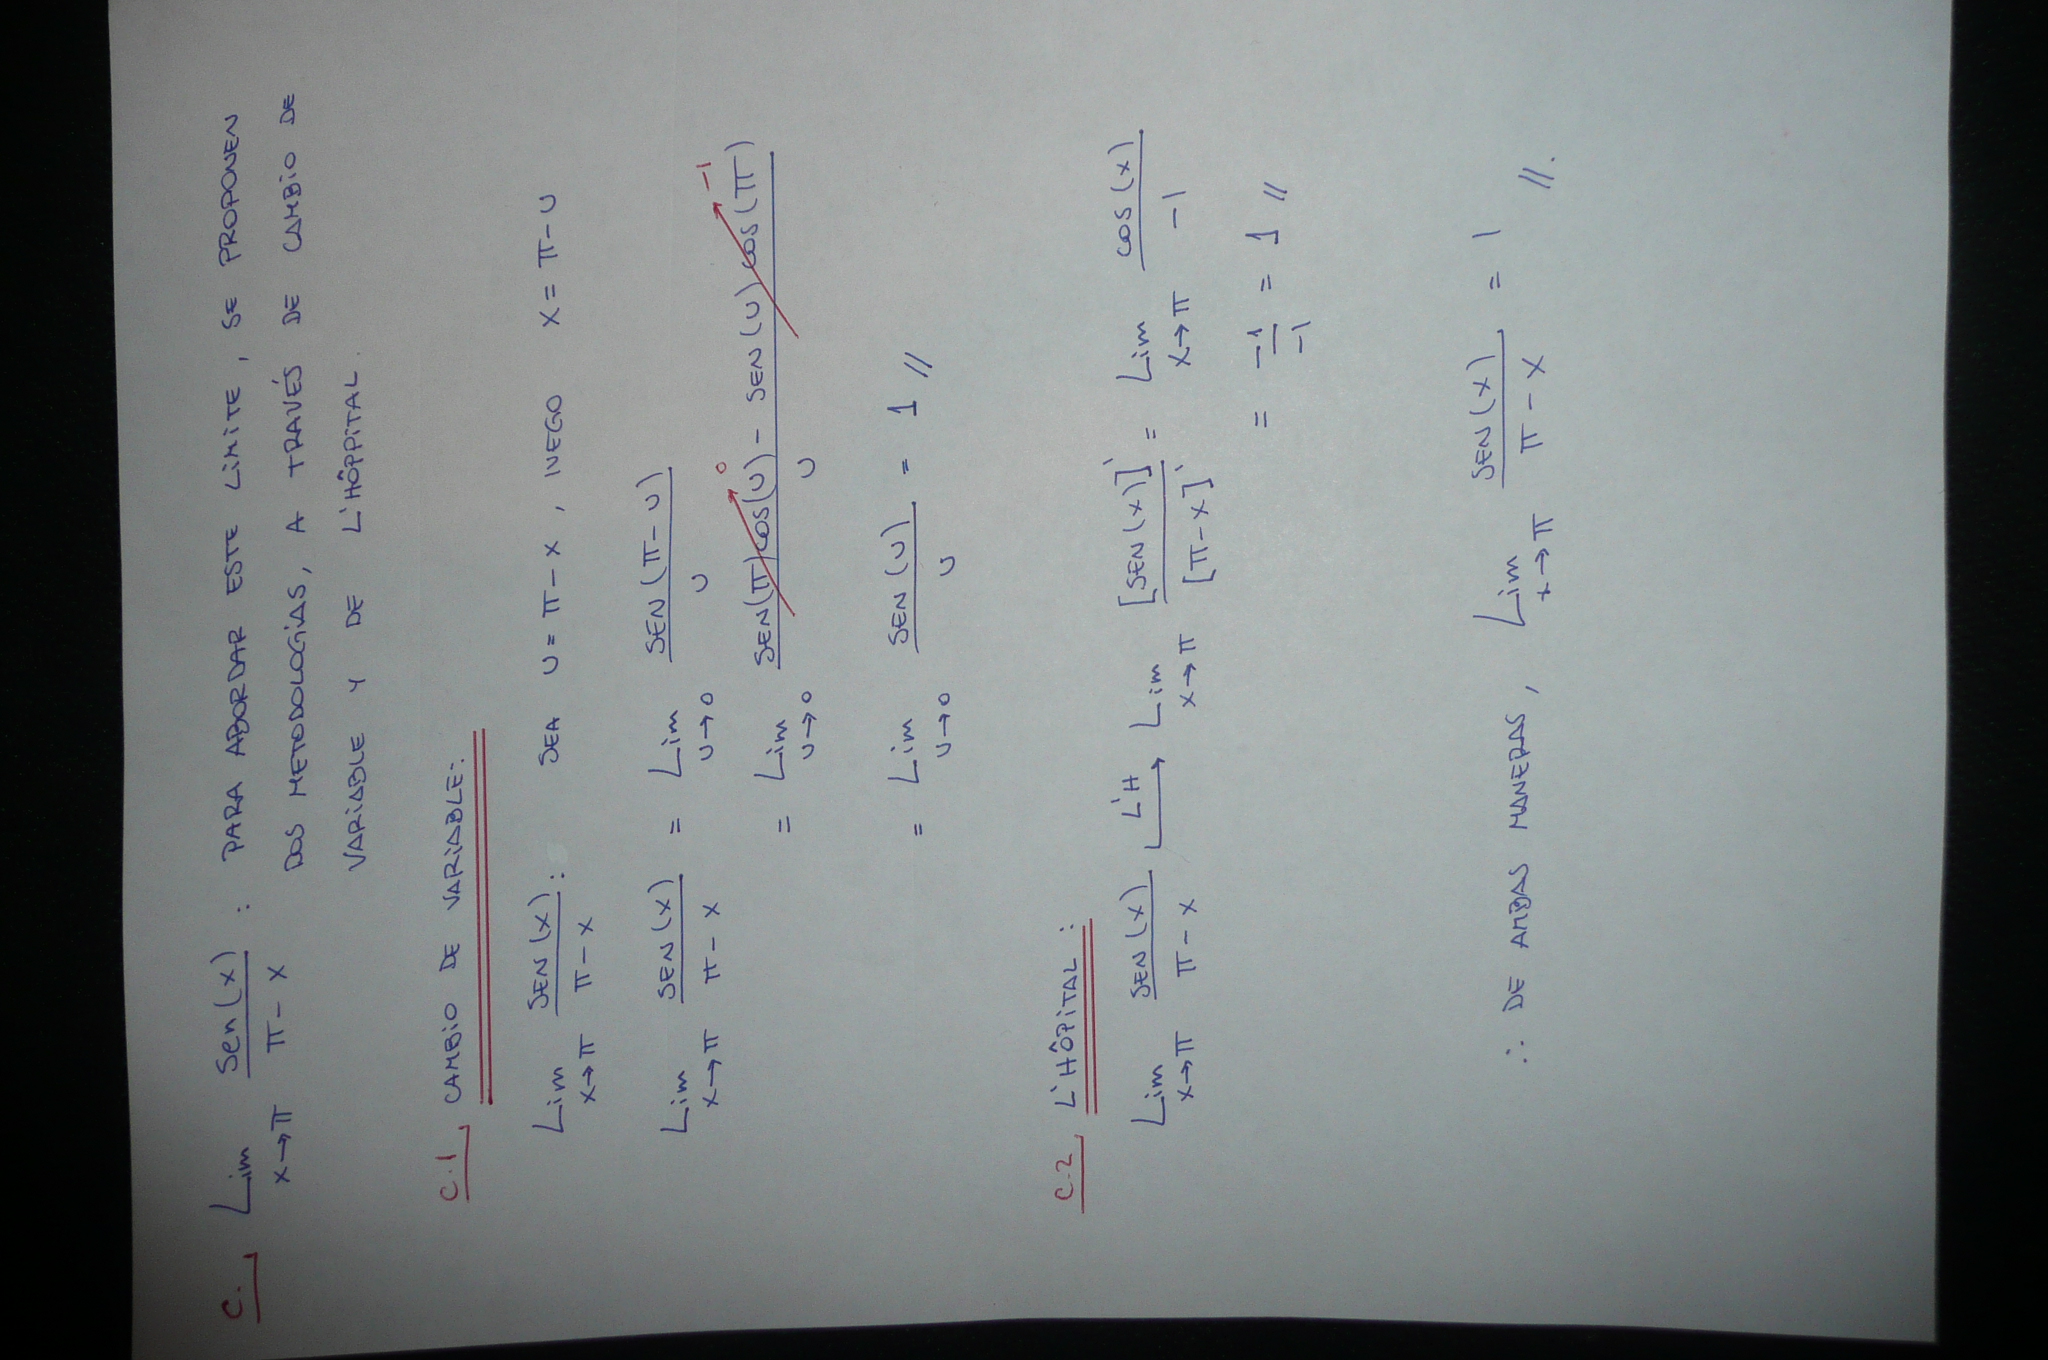 C. Lim x→π Sen(x) / π - x : PARA ABORDAR ESTE LIMITE, SE PROPONEN
DOS METODOLOGÍAS, A TRAVÉS DE CAMBIO DE
VARIABLE Y DE L'HÔPPITAL.
C.1 CAMBIO DE VARIABLE:
Lim x→π SEN(x) / π - x : SEA U = π - x, LUEGO X = π - U
Lim x→π SEN(x) / π - x = Lim U→0 SEN(π - U) / U
= Lim U→0 SEN(π)cos(U) → 0 - SEN(U)cos(π) → -1 / U
= Lim U→0 SEN(U) / U = 1 //
C.2 L'HÔPITAL:
Lim x→π SEN(x) / π - x L'H → Lim x→π [SEN(x)]' / [π - x]' = Lim x→π cos(x) / -1
= -1 / -1 = 1 //
∴ DE AMBAS MANERAS, Lim x→π SEN(x) / π - x = 1 //.